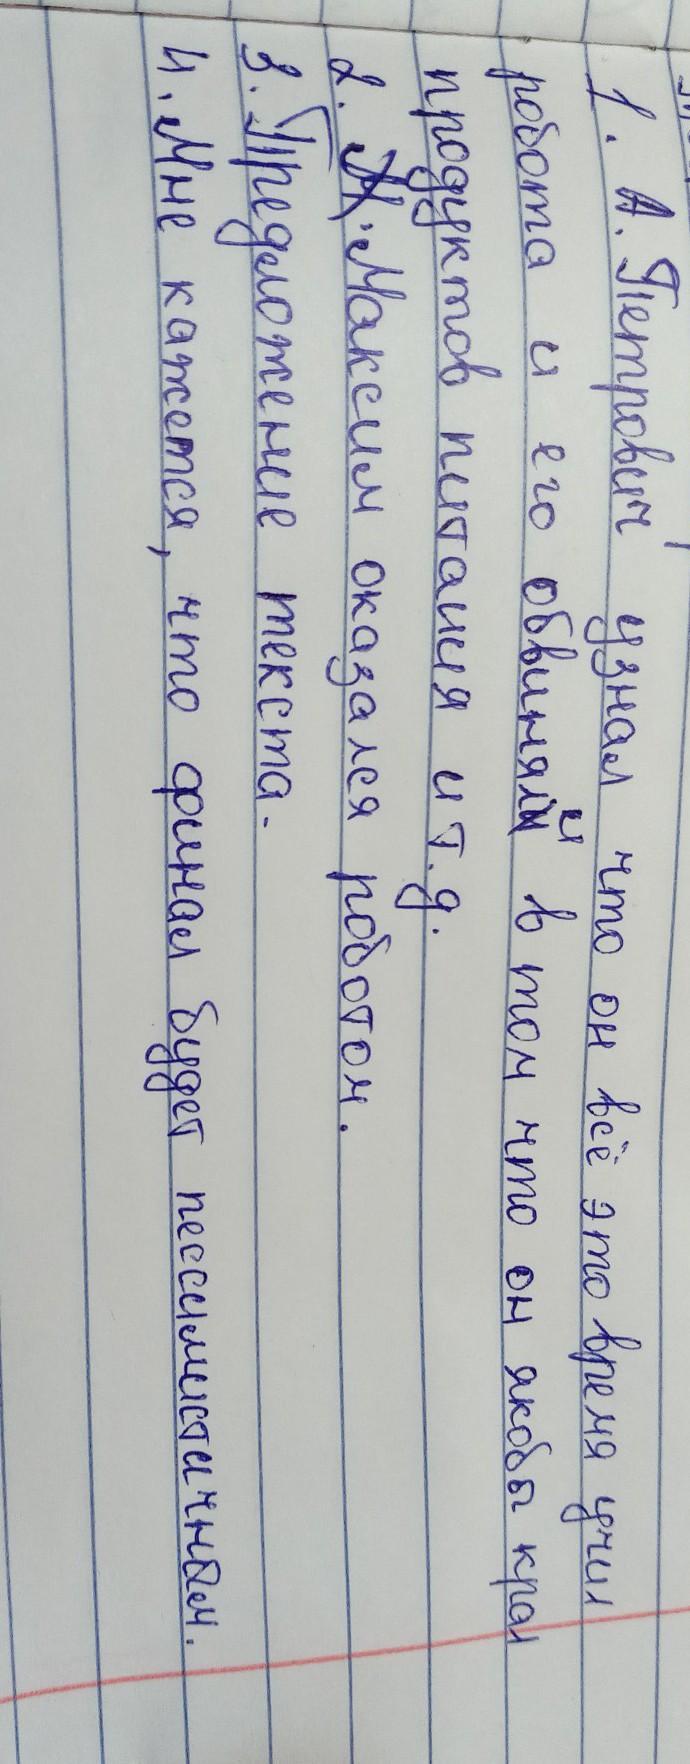 1. А. Петрович узнал что он всё это время учил
робота и его обвиняли в том что он якобы крал
продуктов питания и т.д.
2. Максим оказался роботом.
3. Предложение текста.
4. Мне кажется, что финал будет пессимистичным.